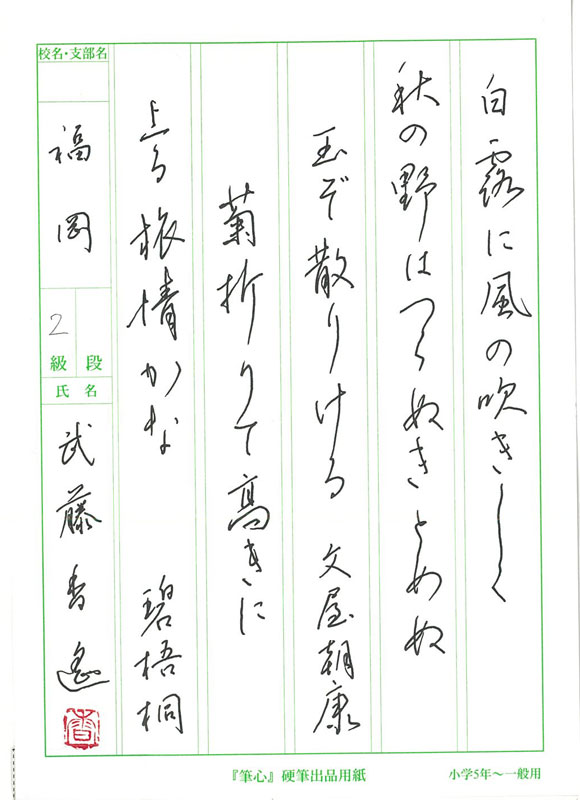 白露に風の吹きしく
秋の野はつらぬきとめぬ
玉ぞ散りける 文屋朝康
菊折りて高きに
上る旅情かな 碧梧桐
校名・支部名
福岡
2
級 段
氏名
武藤香遙
香
『筆心』硬筆出品用紙 小学5年〜一般用